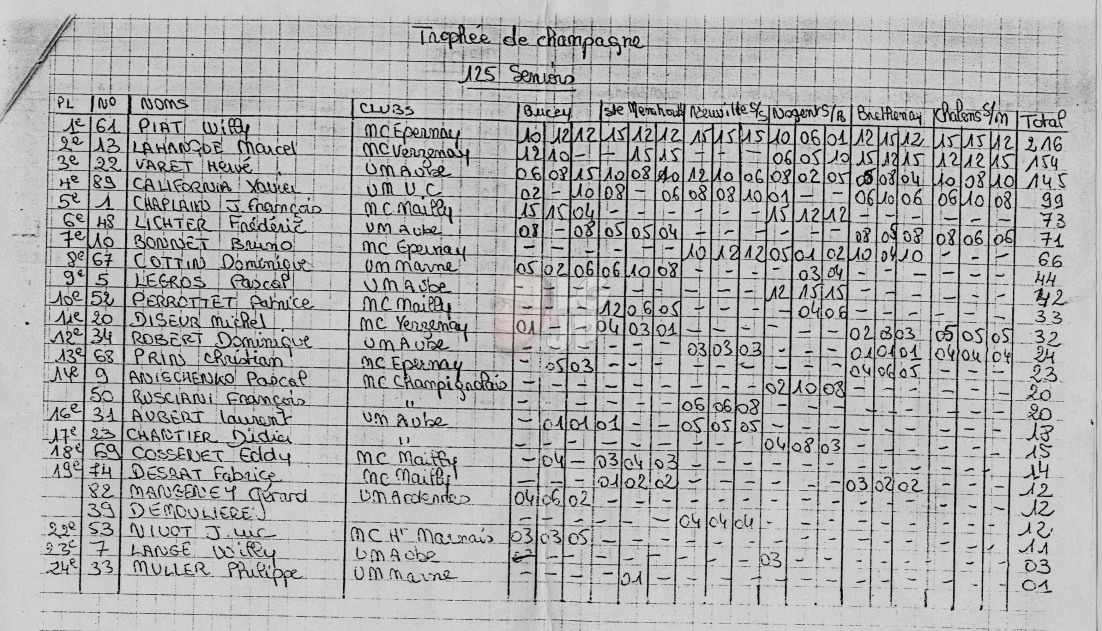 Trophée de champagne
125 Seniors
PL NO NOMS CLUBS Bucey Ste Menehould Neuville S/S Nogent S/A Brethenay Chalons S/M Total
1e 61 PIAT Willy MC Epernay 10 12 12 15 12 12 15 15 15 10 06 01 12 15 12 15 15 12 216
2e 13 Marcel MC Verzenay 12 10 - - 15 15 - - - 06 05 10 15 12 15 12 12 15 154
3e 22 VARET Hervé UM Aube 06 08 15 10 08 10 12 10 06 08 02 05 05 08 04 10 08 10 145
4e 89 CALIFORNIA Xavier U M U C 02 - 10 08 - 06 08 08 10 01 - - 06 10 06 06 10 08 99
5e 1 CHAPLAIN J. François MC Mailly 15 15 04 - - - - - - 15 12 12 - - - - - - 73
6e 48 LICHTER Frédéric UM Aube 08 - 08 05 05 04 - - - - - - 08 05 08 08 06 06 71
7e 10 BONNET Bruno MC Epernay - - - - - - 10 12 12 05 01 02 10 04 10 - - - 66
8e 67 COTTIN Dominique UM Marne 05 02 06 06 10 08 - - - - 03 04 - - - - - - 44
9e 5 LEGROS Pascal UM Aube - - - - - - - - - 12 15 15 - - - - - - 42
10e 52 PERROTTET Patrice MC Mailly - - - 12 06 05 - - - - 04 06 - - - - - - 33
11e 20 DISEUR Michel MC Verzenay 01 - - 04 03 01 - - - - - - 02 03 03 05 05 05 32
12e 34 ROBERT Dominique UM Aube - - - - - - 03 03 03 - - - 01 01 01 04 04 04 24
13e 68 PRIN Christian MC Epernay - 05 03 - - - - - - - - - 04 06 05 - - - 23
14e 9 ANISCHENKO Pascal MC Champignolais - - - - - - - - - 02 10 08 - - - - - - 20
50 RUSCIANI François " - - - - - - 06 06 08 - - - - - - - - - 20
16e 31 AUBERT Laurent UM Aube - 01 01 01 - - 05 05 05 - - - - - - - - -
17e 23 CHARTIER Didier " - - - - - - - - - 04 08 03 - - - - - - 15
18e 69 COSSENET Eddy MC Mailly - 04 - 03 04 03 - - - - - - - - - - - - 14
19e 74 DESRAT Fabrice MC Mailly - - - 01 02 02 - - - - - - 03 02 02 - - - 12
82 MANGENEY Gérard UM Ardennes 04 06 02 - - - - - - - - - - - - - - - 12
39 DEMOULIERE J - - - - - - 04 04 04 - - - - - - - - - 12
22e 53 NIVOT J. Luc MC Hte Marnais 03 03 05 - - - - - - - - - - - - - - - 11
23e 7 LANGE Willy UM Aube - - - - - - - - - 03 - - - - - - - - 03
24e 33 MULLER Philippe UM Marne - - - - 01 - - - - - - - - - - - - - 01